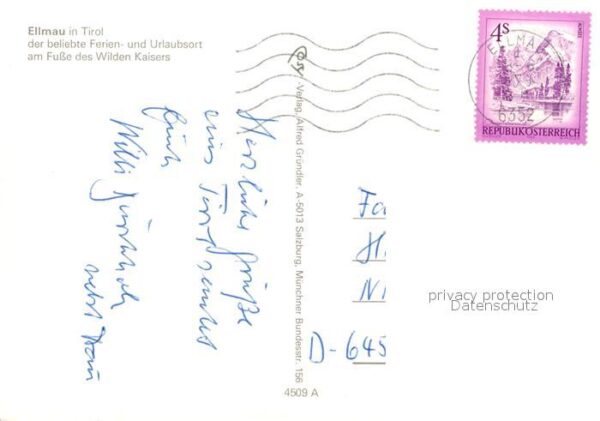 Ellmau in Tirol
der beliebte Ferien- und Urlaubsort
am Fuße des Wilden Kaisers
4S
ALMSEE
REPUBLIK ÖSTERREICH
ELLMAU
6352
Herzliche Grüße
aus Tirol sendet
Euch
Willi
nebst Frau
-Verlag, Alfred Gründler, A-5013 Salzburg, Münchner Bundesstr. 156
4509 A
Fa
H
Ni
D-645
privacy protection
Datenschutz